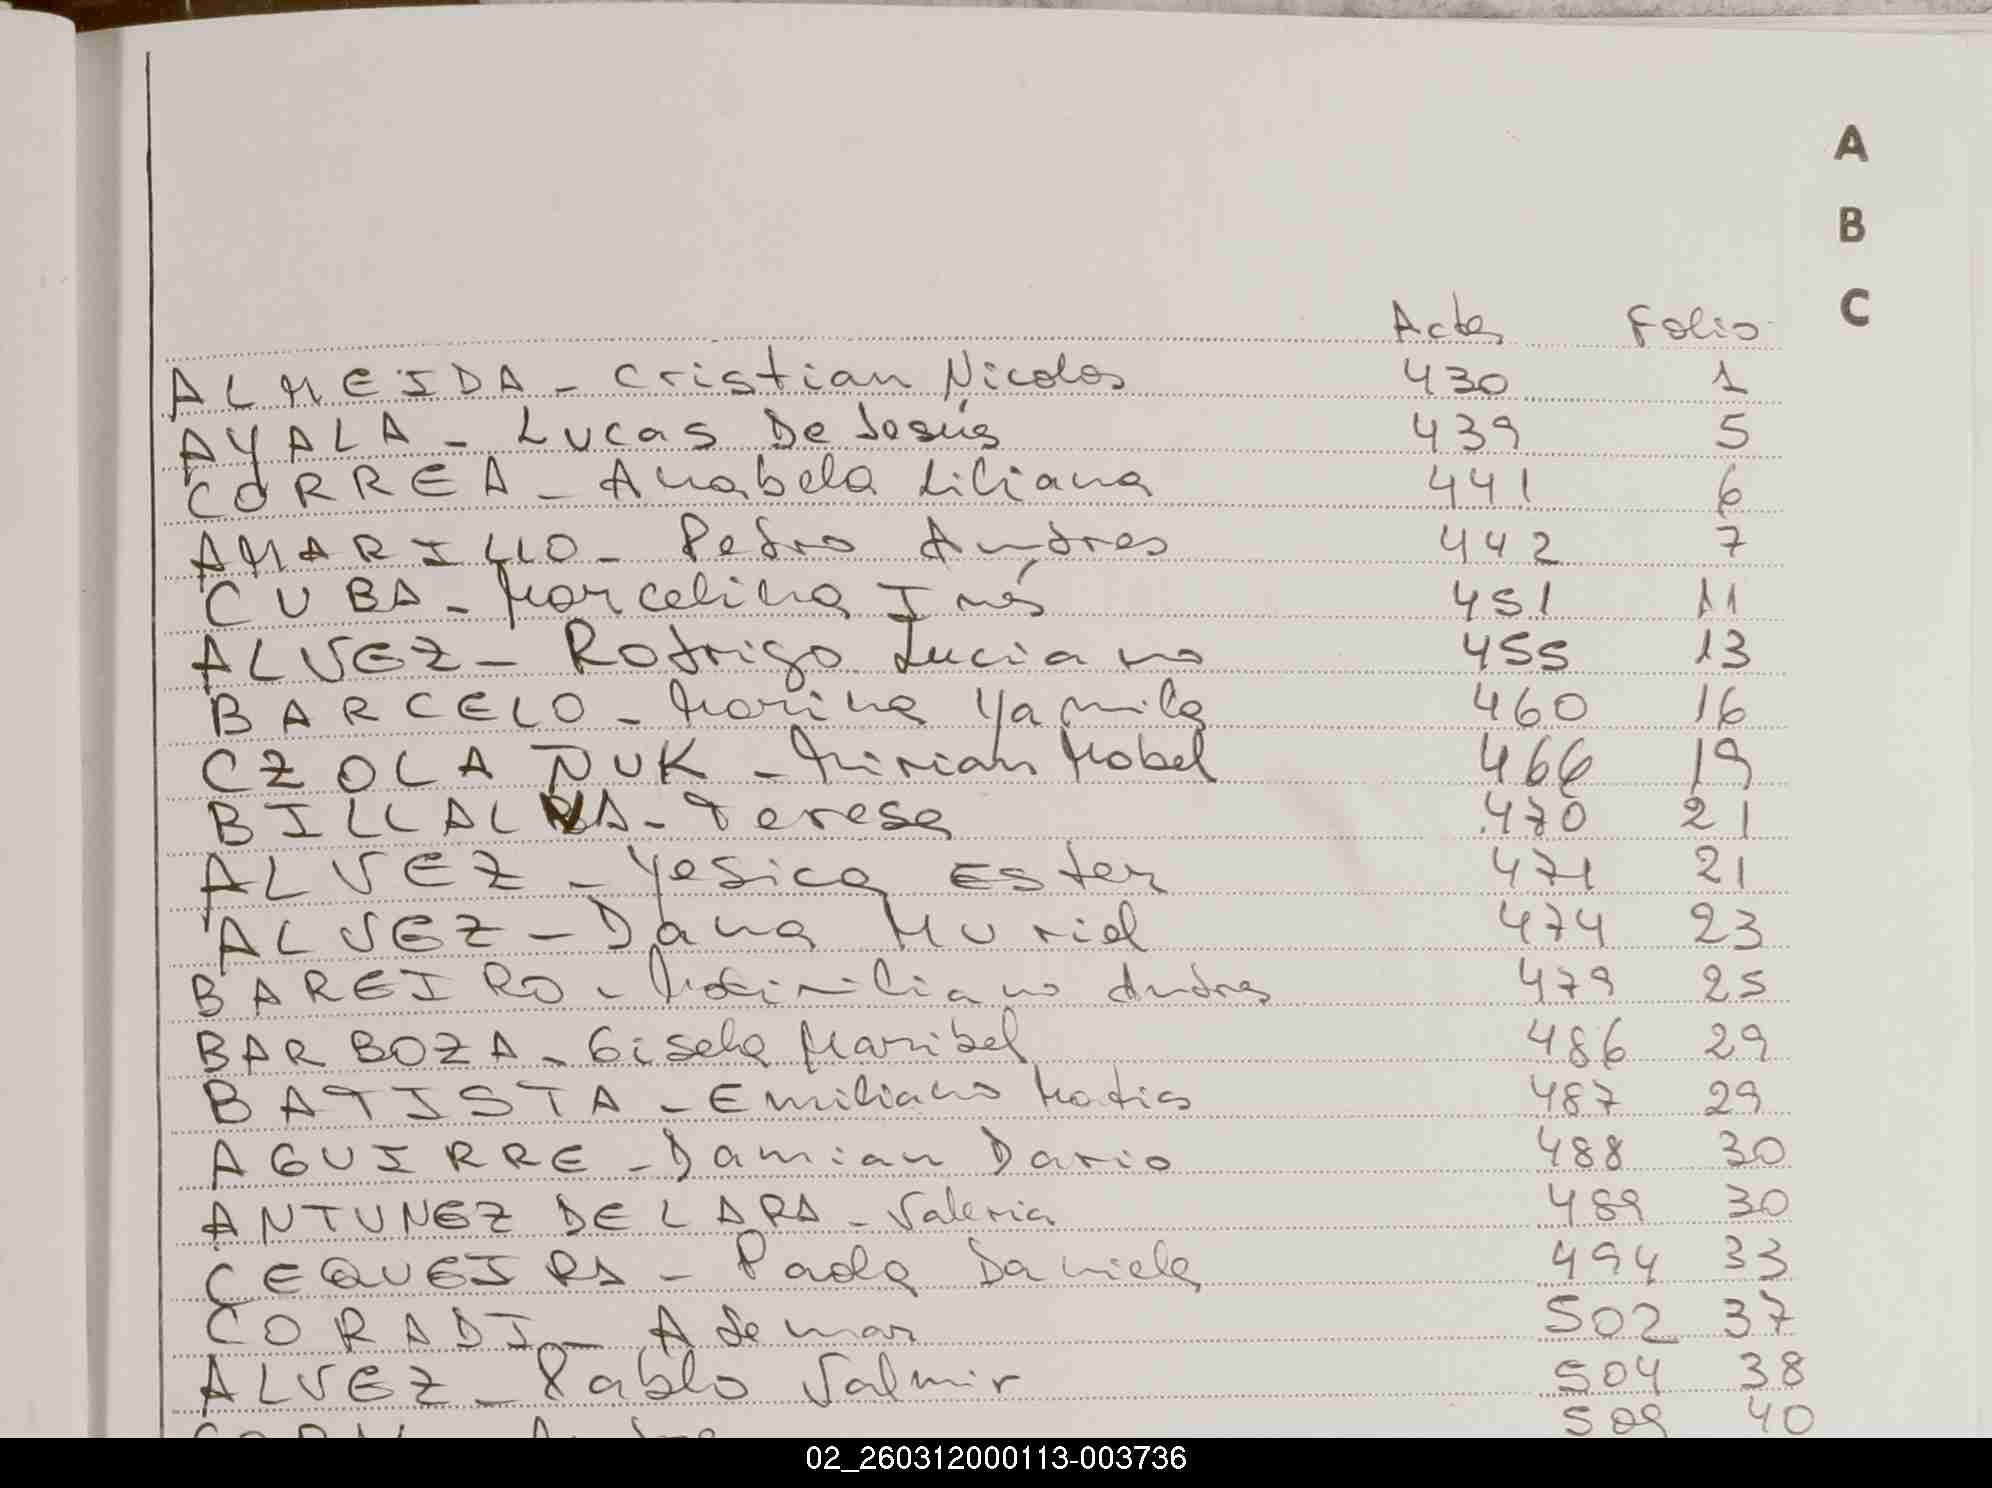 A
B
C
Acta Folio
ALMEIDA - Cristian Nicolas 430 1
AYALA - Lucas De Jesús 439 5
CORREA - Anabela Liliana 441 6
AMARILLO - Pedro Andres 442 7
CUBA - Marcelina Inés 451 11
ALVEZ - Rodrigo Luciano 455 13
BARCELO - Marina Yamila 460 16
CZOLA ÑUK - Mirian Mabel 466 19
BILLALVA - Teresa 470 21
ALVEZ - Yesica Ester 471 21
ALVEZ - Dana Muriel 474 23
BAREIRO - Maximiliano Andres 479 25
BARBOZA - Gisela Maribel 486 29
BATISTA - Emiliano Matias 487 29
AGUIRRE - Damian Dario 488 30
ANTUNEZ DE LARA - Valeria 489 30
CEQUEIRA - Paola Daniela 494 33
CORADI - Ademar 502 37
ALVEZ - Pablo Valmir 504 38
509 40
02_260312000113-003736